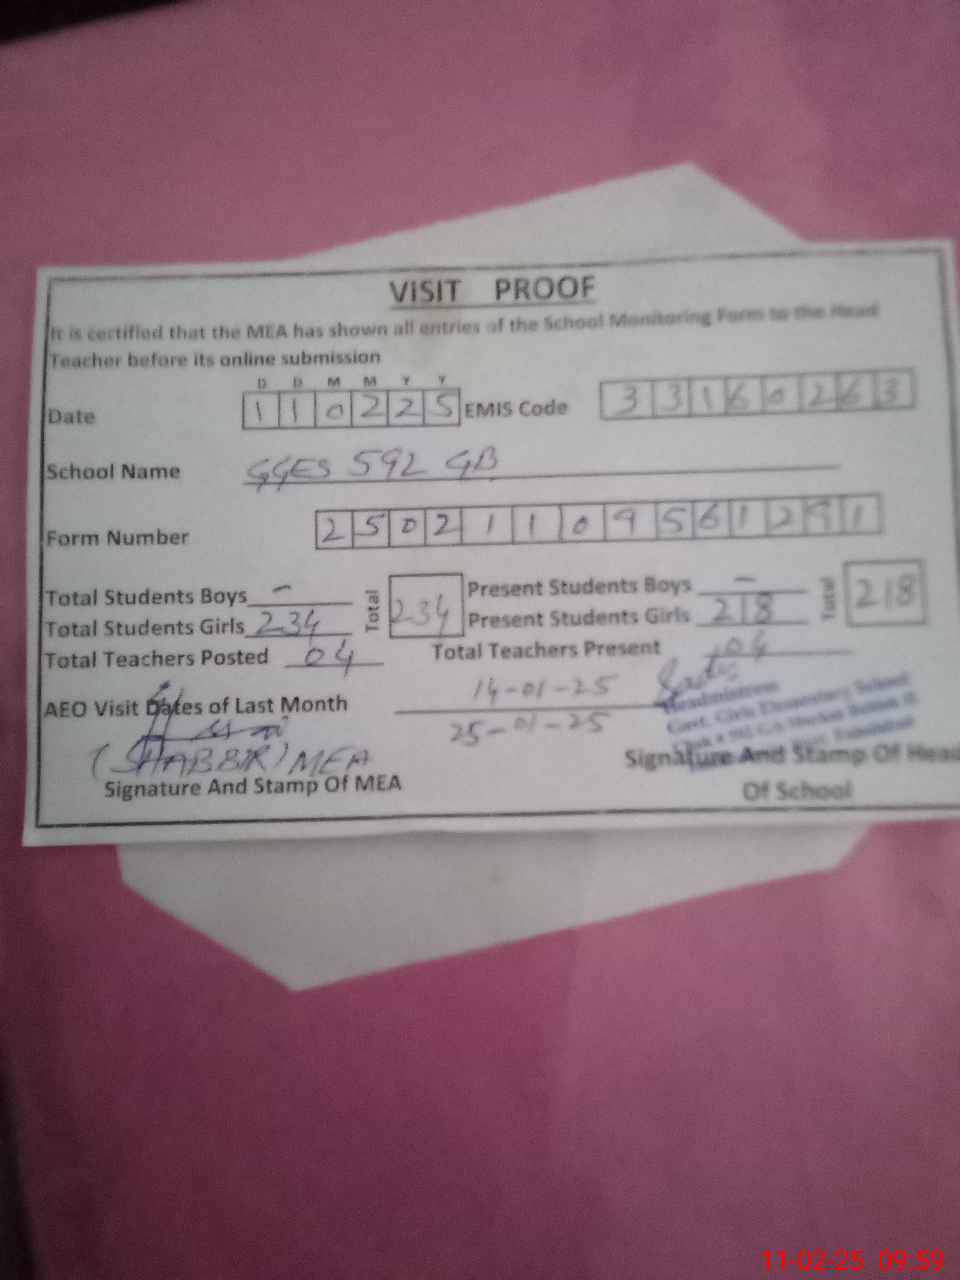 VISIT PROOF
It is certified that the MEA has shown all entries of the School Monitoring Form to the Head
Teacher before its online submission
D D M M Y Y
Date 1 1 0 2 2 5 EMIS Code 3 3 1 6 0 2 6 3
School Name GGES 592 GB
Form Number 2 5 0 2 1 1 0 9 5 6 1 2 9 1
Total Students Boys - Total 234 Present Students Boys - Total 218
Total Students Girls 234 Present Students Girls 218
Total Teachers Posted 04 Total Teachers Present 04
AEO Visit Dates of Last Month 14-01-25
25-01-25
Headmistress
Govt. Girls Elementary School
(SHABBIR) MEA
Signature And Stamp Of MEA
Signature And Stamp Of Head
Of School
11-02-25 09:59